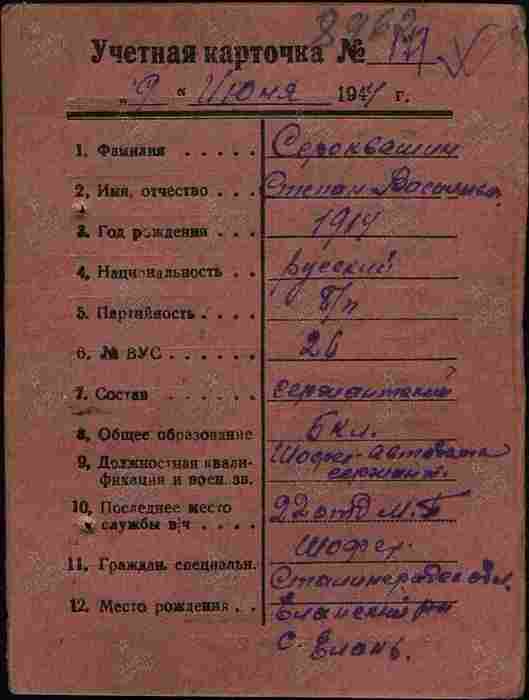 8962
Учетная карточка № 17
„ 9 “ Июня 1944 г.
1. Фамилия . . . . . Сероквашин
2, Имя, отчество . . . Степан Василье
3. Год рождения . . . 1914
4. Национальность . . русский
5. Партийность . . . . б/п
6. № ВУС . . . . . . 26
7. Состав . . . . . . сержантский
8, Общее образование 5 кл.
9, Должностная квали- Шофер-
фикация и воен. зв. сержант.
10, Последнее место 22 отд М.Б
службы в/ч . . . .
11, Граждан. специальн. Шофер.
Сталинградская обл.
12. Место рождения . . Еланский рн
с. Елань.